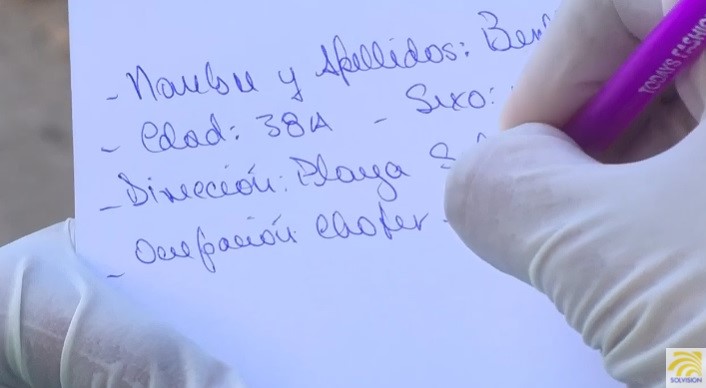 - Nombre y Apellidos: Ben
- Edad: 38A - Sexo:
- Dirección: Playa S
- Ocupación Chofer -
TODAYS FASHIO
SOLVISION